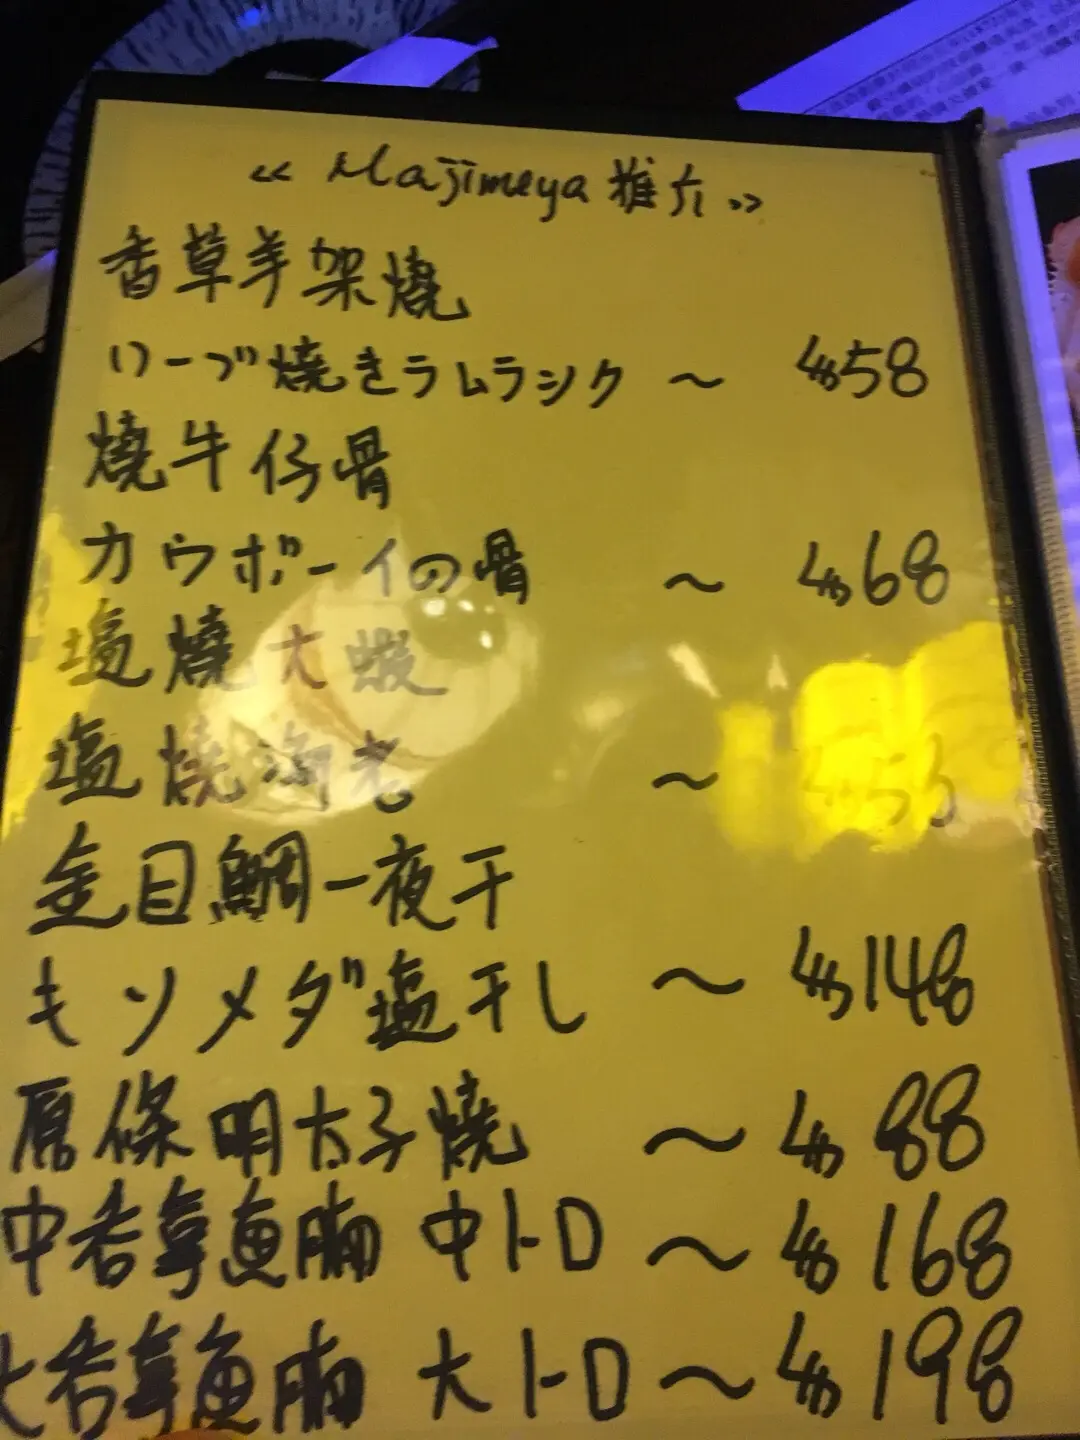 《 Majimeya 推介 》
香草羊架燒
ハーブ焼きラムラック ～ $58
燒牛仔骨
カウボーイの骨 ～ $68
塩燒大蝦
塩燒海老 ～
金目鯛一夜干
キンメダ塩干し ～ $148
原條明太子燒 ～ $88
中吞拿魚腩 中トロ ～ $168
大吞拿魚腩 大トロ ～ $198